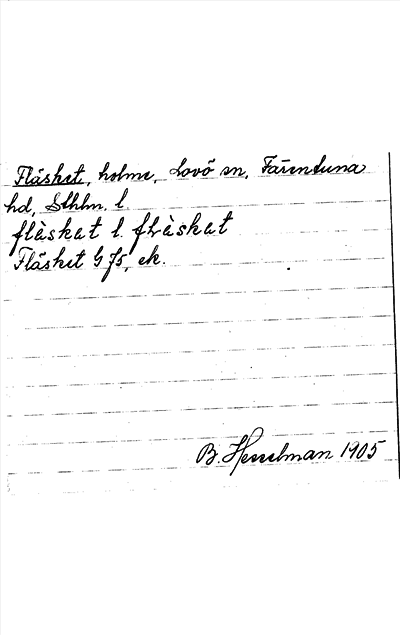 Fläsket, holme, Lovö sn, Färentuna
hd, Sthlm. l.
flàskat l. fLàskat
Fläsket G f5, ek.
B. Hesselman 1905